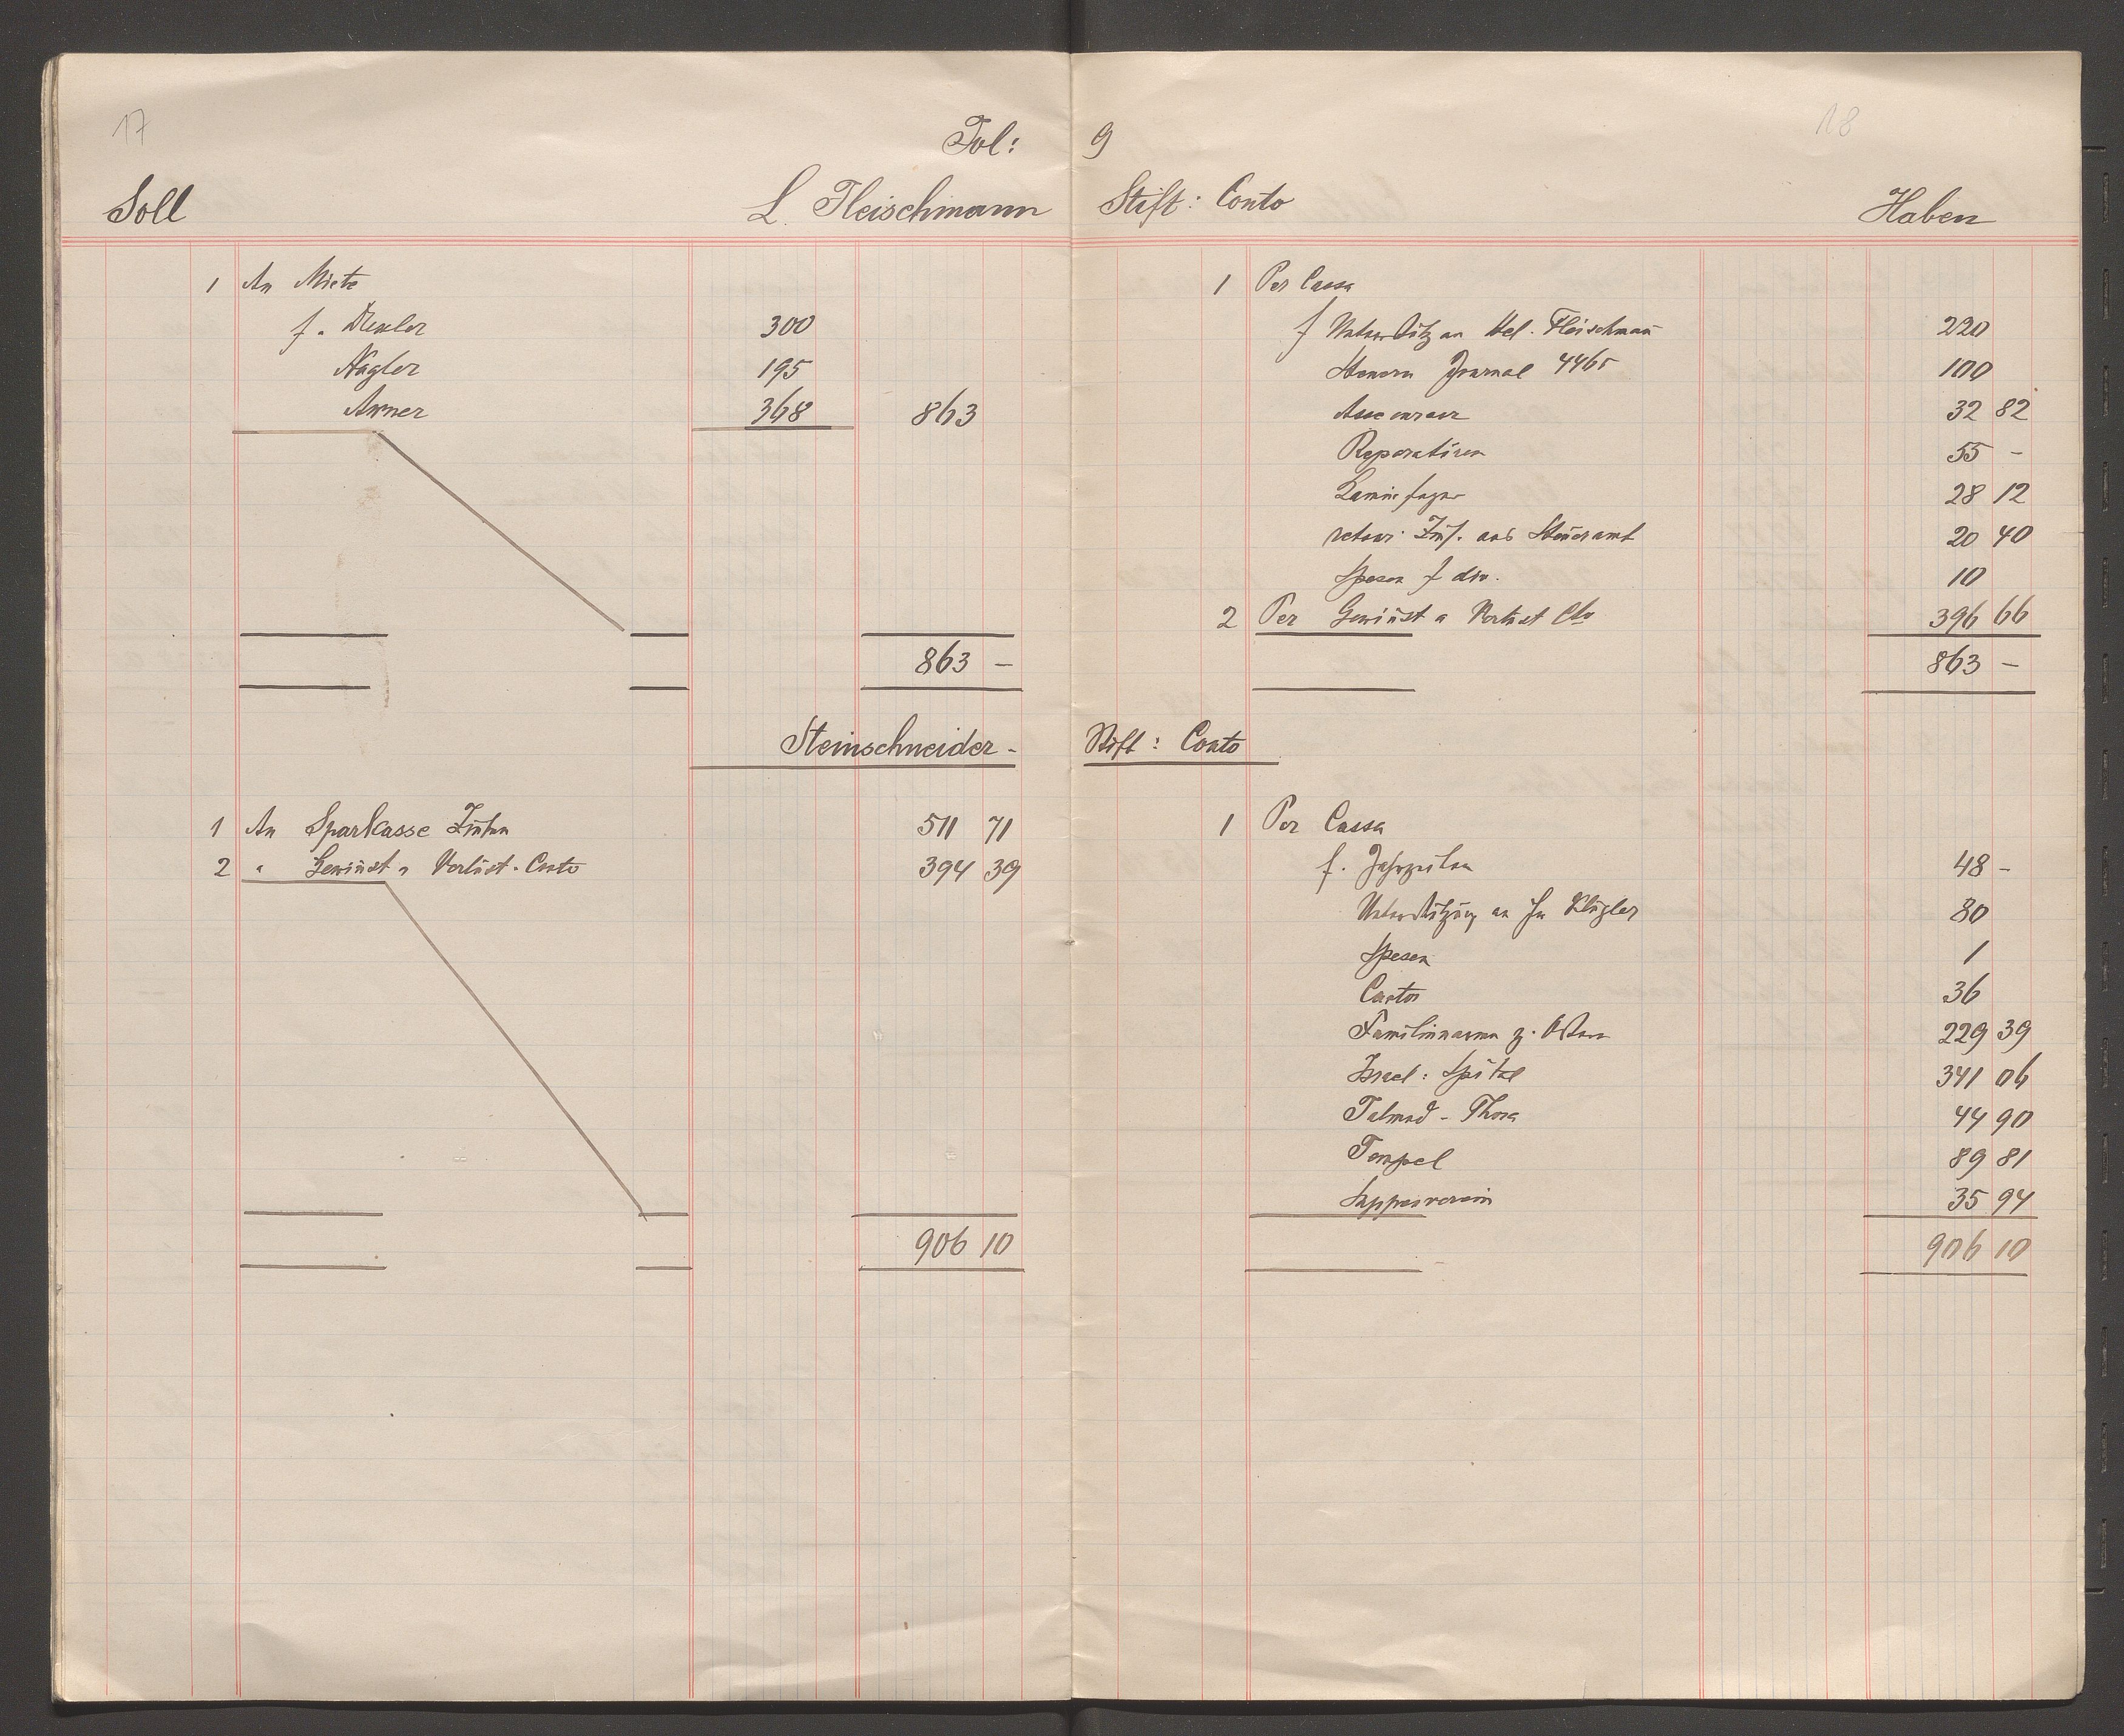 17
Fol:
Soll
L. Fleischmann
1 An Miete
f. Drexler 300
Nagler 195
Arner 368 863
863 –
Steinschneider -
1 An Sparkasse Zinsen 511 71
2 " Gewinst u Verlust-Conto 394 39
906 10
9
18
Stift: Conto
Haben
1 Per Cassa
f Unterstütz an Hel. Fleischmann 220
Journal 4465 100
Assecuranz 32 82
Reparatúren 55 –
Kaminfeger 28 12
retour Zins. ans Steueramt 20 40
Spesen f div. 10
2 Per Gewinst u Verlust Cto 396 66
863 –
Stift: Conto
1 Per Cassa
f. Jahrzeiten 48 –
Unterstützung an Klügler 80
Spesen 1
Cantor 36
z. Ostern 229 39
Israel: Spital 341 06
Talmud-Thora 44 90
Tempel 89 81
Suppenverein 35 94
906 10